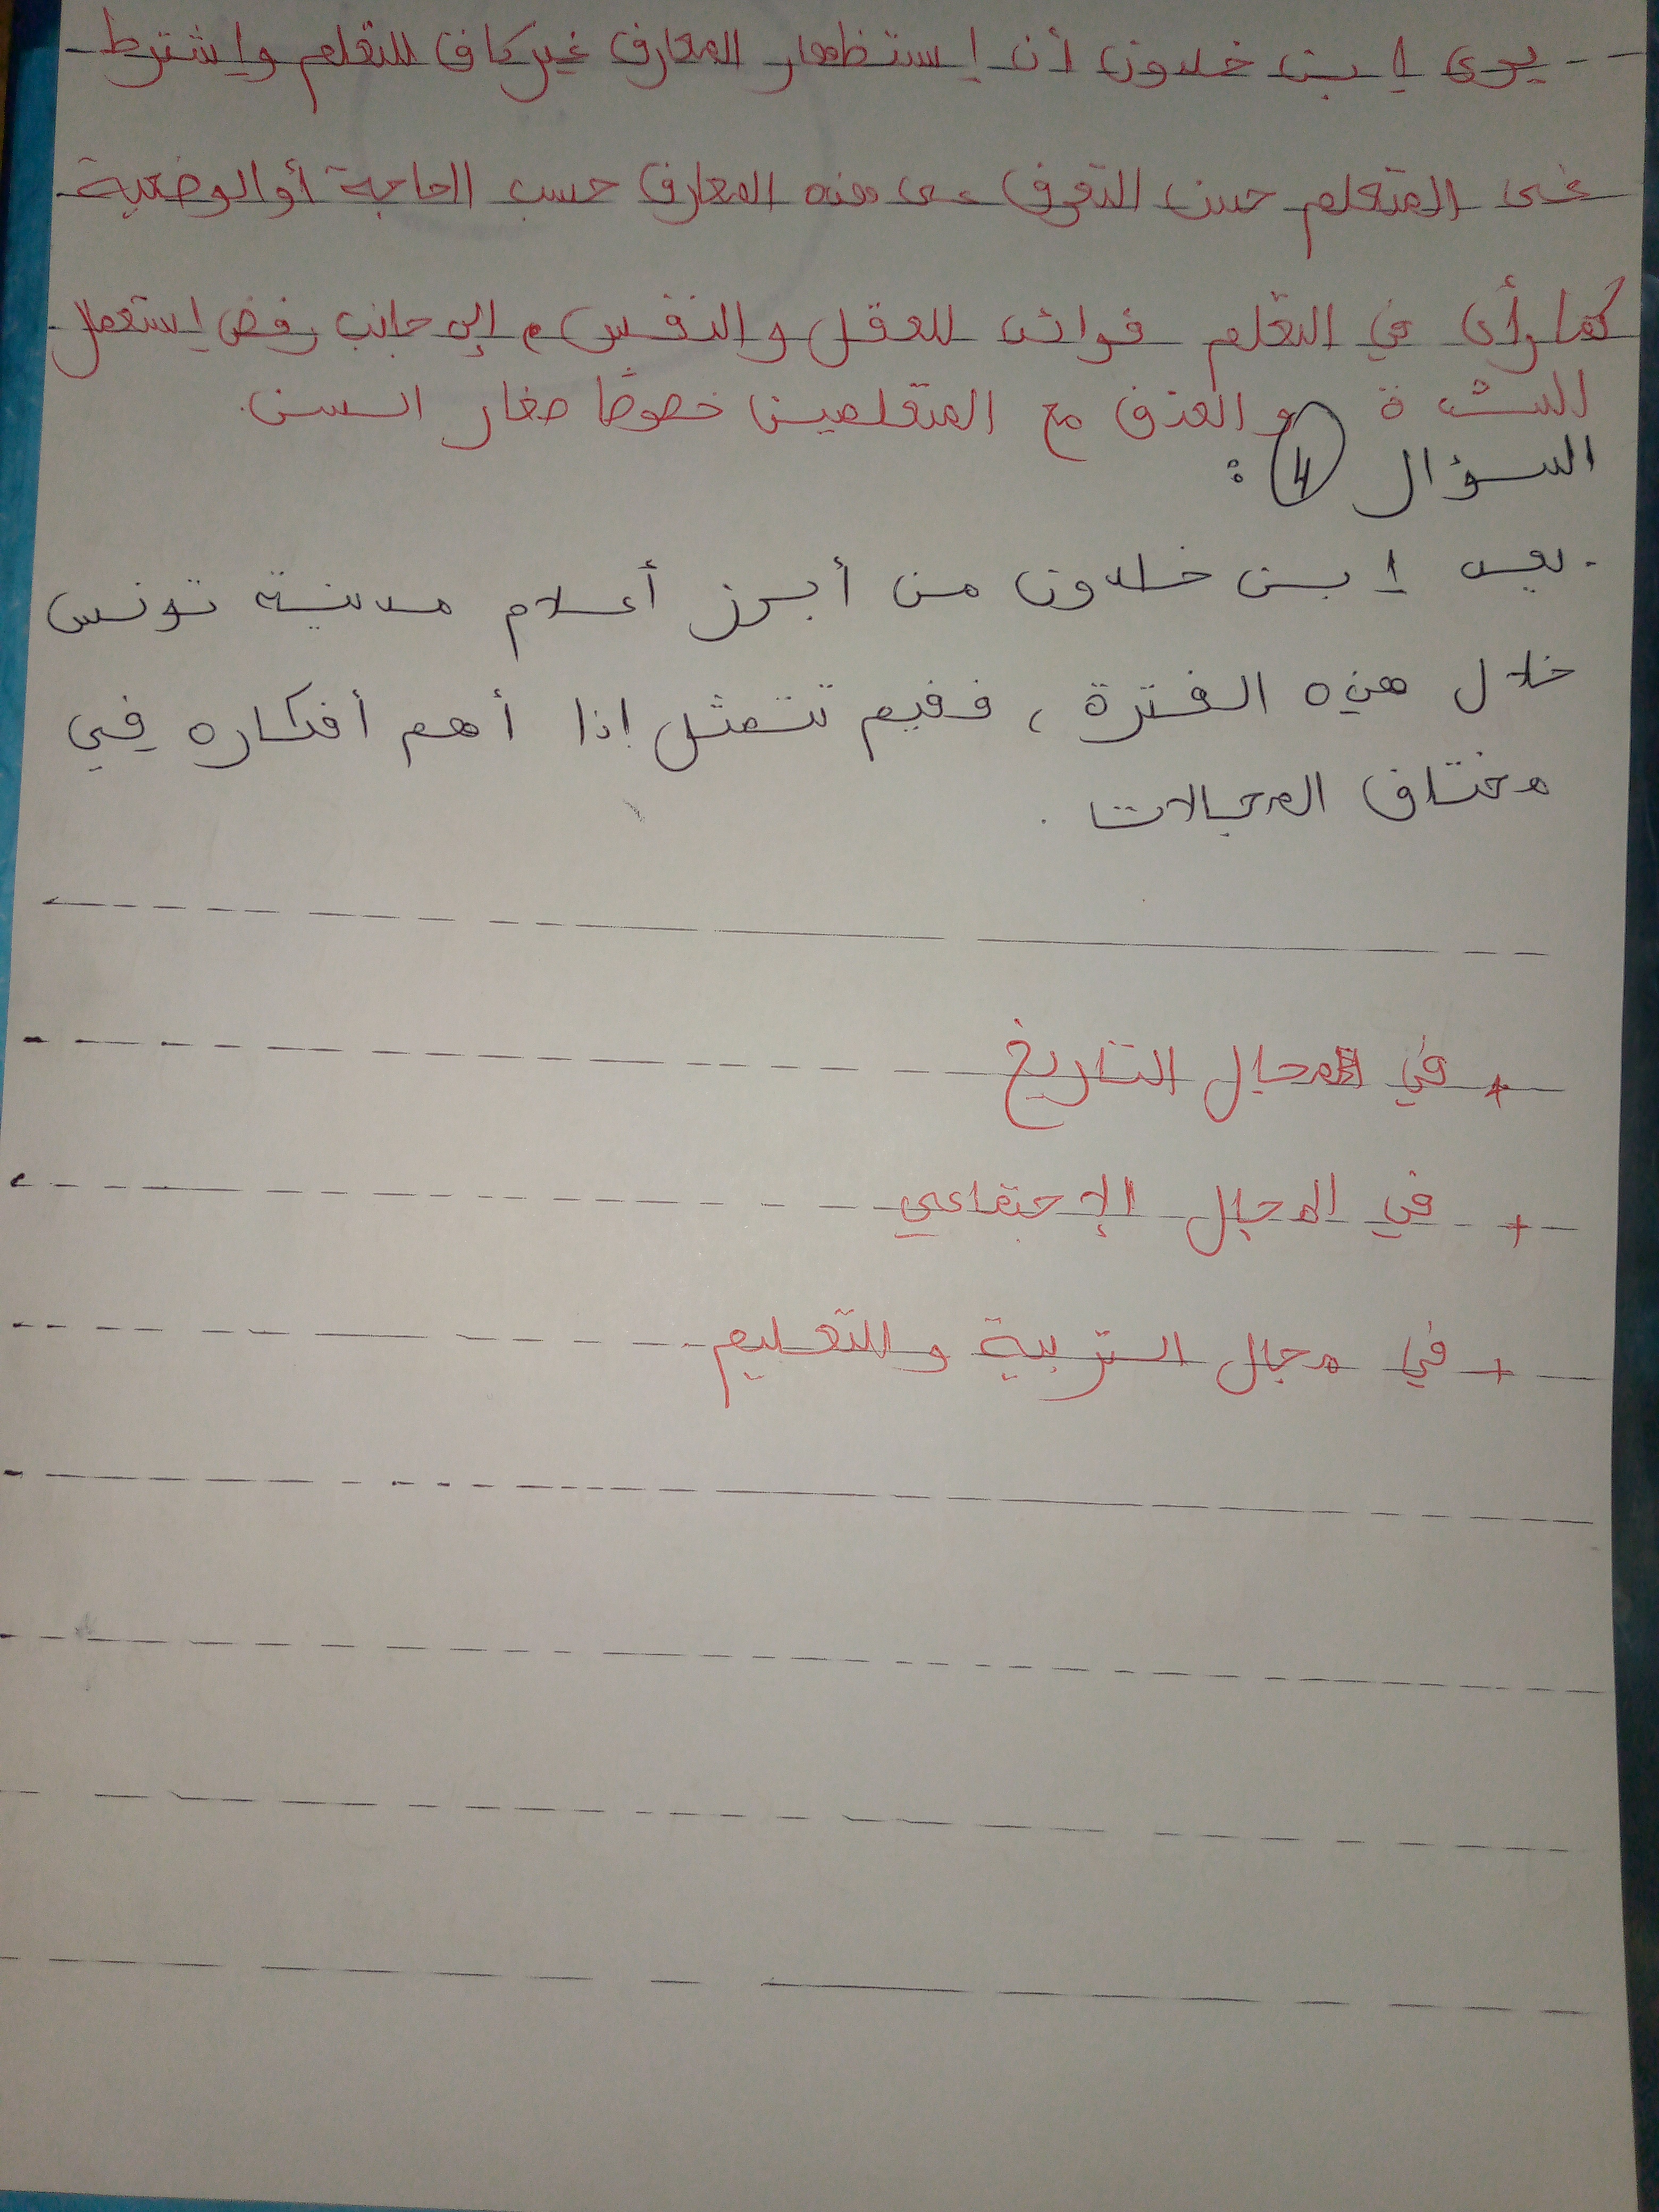 يرى إبن خلدون أن إستظهار المعارف غير كاف للتعلم وإشترط
على المتعلم حسن التعرف على هذه المعارف حسب الحاجة أو الوضعية
كما رأى في التعلم فوائد للعقل والنفس، إلى جانب رفض إستعمال
الشدة والعنف مع المتعلمين خصوصًا صغار السن.
السؤال 4 :
. يعد إبن خلدون من أبرز أعلام مدينة تونس
خلال هذه الفترة، ففيم تتمثل إذا أهم أفكاره في
مختلف المجالات .
+ في المجال التاريخ
+ في المجال الإجتماعي
+ في مجال التربية والتعليم